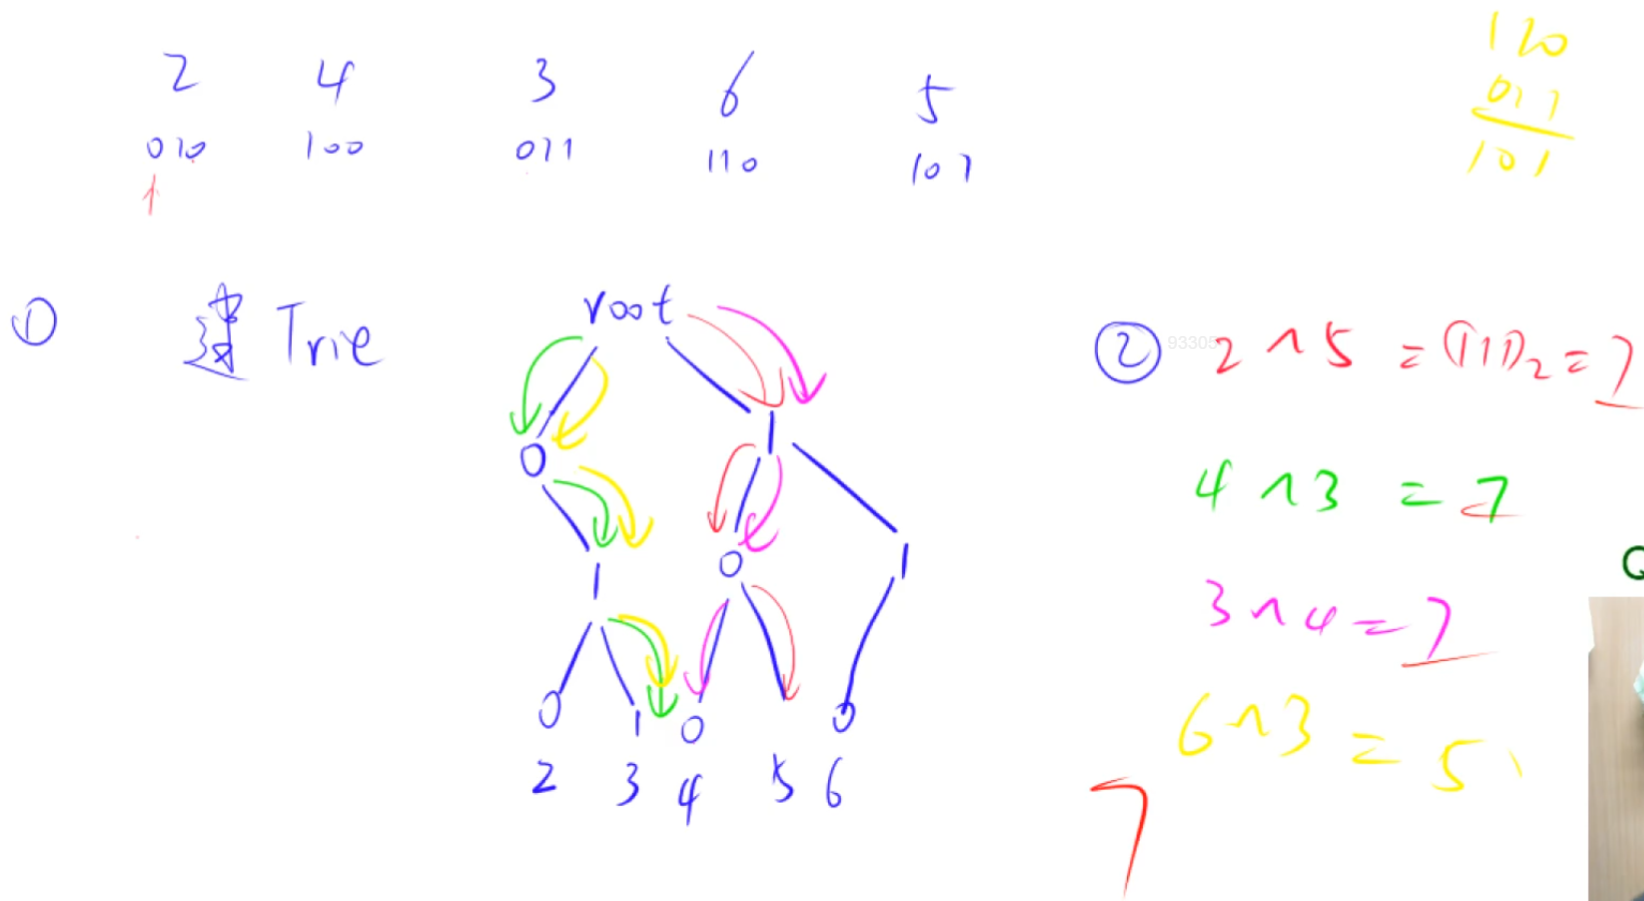 2 4 3 6 5
010 100 011 110 101
110
011
101
① 建 Trie
root
0 1
1 0 1
0 1 0 0
2 3 4 5 6
② 2 ^ 5 = (111)₂ = 7
93305
4 ^ 3 = 7
3 ^ 4 = 7
6 ^ 3 = 5
7